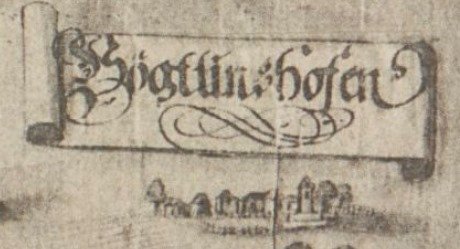 Vögtlinshofen